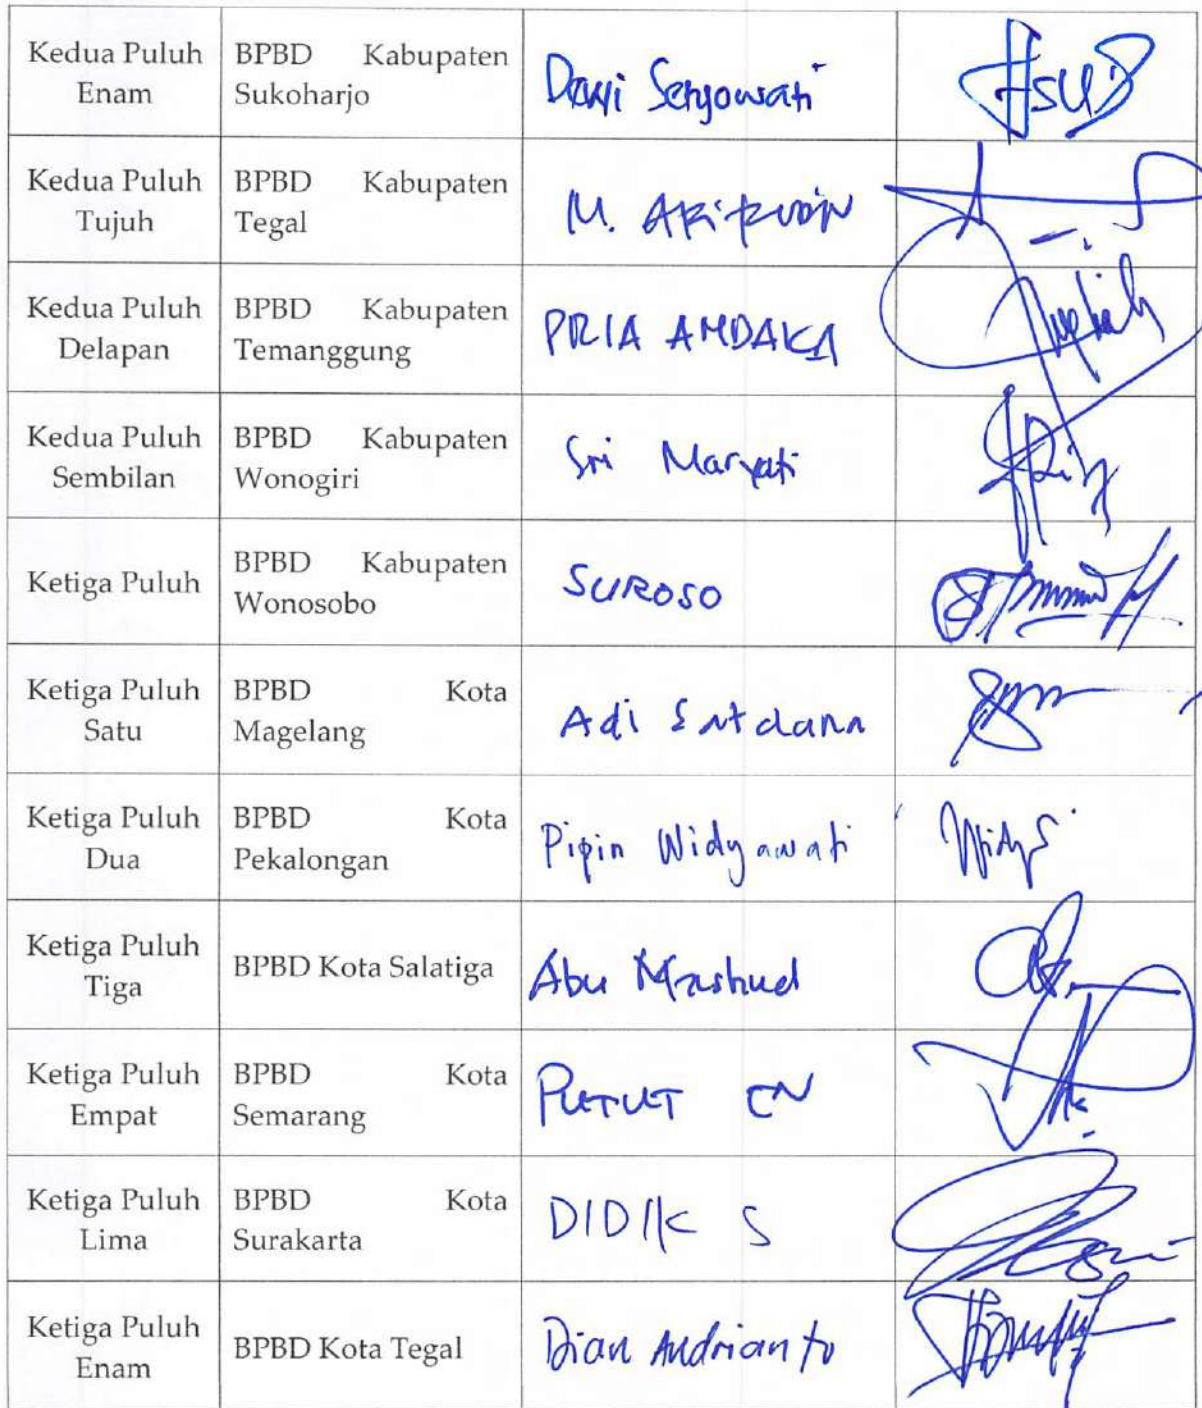 Kedua Puluh
Enam
BPBD Kabupaten
Sukoharjo
Dewi Setyowati
Kedua Puluh
Tujuh
BPBD Kabupaten
Tegal
M.
Kedua Puluh
Delapan
BPBD Kabupaten
Temanggung
PRIA AMDAKA
Kedua Puluh
Sembilan
BPBD Kabupaten
Wonogiri
Sri Maryati
Ketiga Puluh
BPBD Kabupaten
Wonosobo
SUROSO
Ketiga Puluh
Satu
BPBD Kota
Magelang
Adi
Ketiga Puluh
Dua
BPBD Kota
Pekalongan
Pipin Widyawati
Ketiga Puluh
Tiga
BPBD Kota Salatiga
Abu Mashud
Ketiga Puluh
Empat
BPBD Kota
Semarang
PUTUT CN
Ketiga Puluh
Lima
BPBD Kota
Surakarta
DIDIK S
Ketiga Puluh
Enam
BPBD Kota Tegal
Dian Andrianto